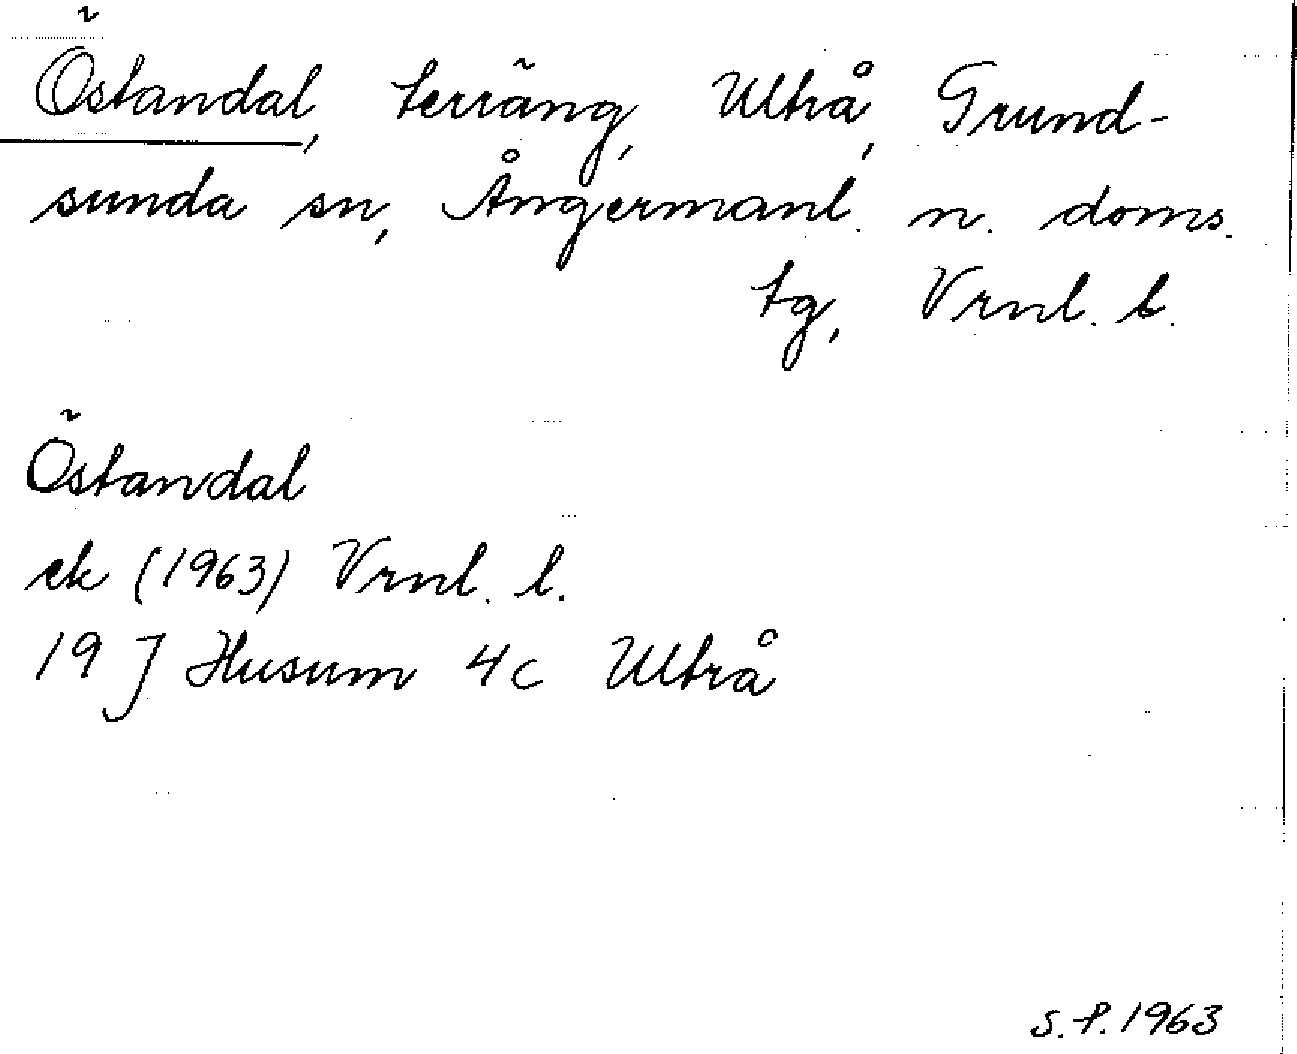 Östandal, terräng, Ultrå, Grund-
sunda sn, Ångermanl. n. doms.
tg, Vrnl. l.
Östandal
ek (1963) Vrnl. l.
19 J Husum 4c Ultrå
S.P. 1963